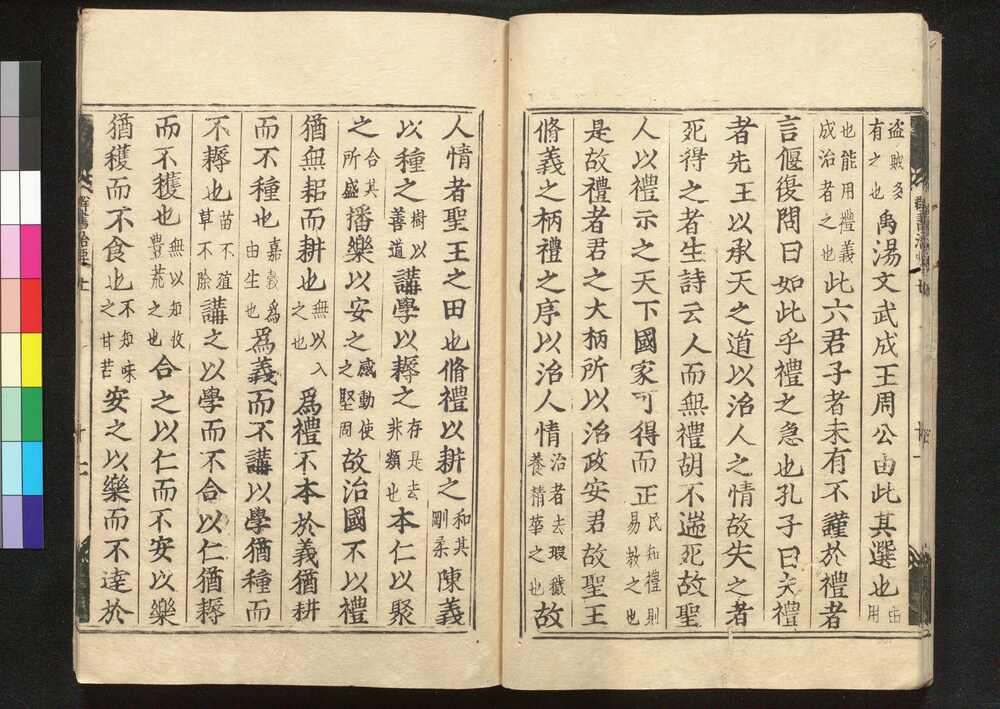 盗賊多有之也禹湯文武成王周公由此其選也由用
也能用禮義成治者之也此六君子者未有不謹於禮者
言偃復問曰如此乎禮之急也孔子曰夫禮
者先王以承天之道以治人之情故失之者
死得之者生詩云人而無禮胡不遄死故聖
人以禮示之天下國家可得而正民知禮則易教之也
是故禮者君之大柄所以治政安君故聖王
脩義之柄禮之序以治人情治者去瑕穢養精華之也故
人情者聖王之田也脩禮以耕之和其剛柔陳義
以種之樹以善道講學以耨之存是去非類也本仁以聚
之合其所盛播樂以安之感動使之堅固故治國不以禮
猶無耜而耕也無以入之也為禮不本於義猶耕
而不種也嘉穀為由生也為義而不講以學猶種而
不耨也苗不殖草不除講之以學而不合以仁猶耨
而不穫也無以知收豐荒之也合之以仁而不安以樂
猶穫而不食也不知味之甘苦安之以樂而不達於